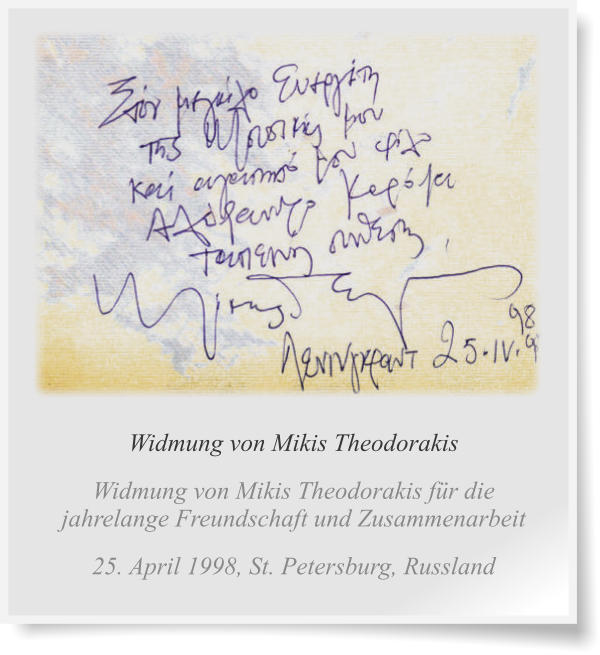 Στον μεγάλο Ευεργέτη
της Μουσικής μου
και αγαπητό μου φίλο
Αλέξανδρο
Λενινγκραντ 25.IV.98
Widmung von Mikis Theodorakis
Widmung von Mikis Theodorakis für die
jahrelange Freundschaft und Zusammenarbeit
25. April 1998, St. Petersburg, Russland